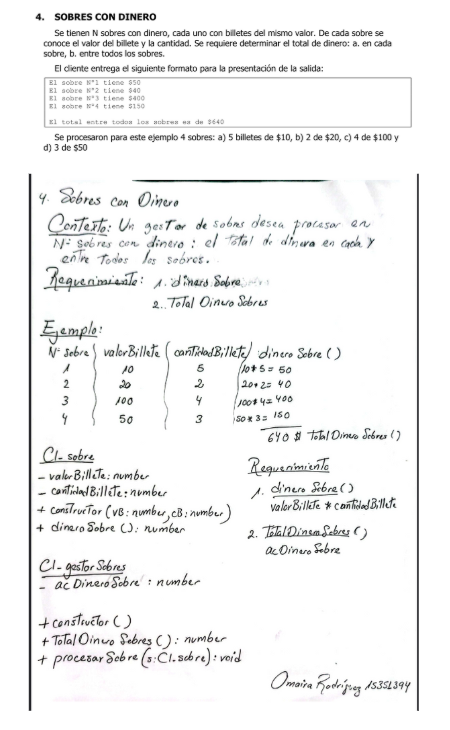 4. SOBRES CON DINERO
Se tienen N sobres con dinero, cada uno con billetes del mismo valor. De cada sobre se
conoce el valor del billete y la cantidad. Se requiere determinar el total de dinero: a. en cada
sobre, b. entre todos los sobres.
El cliente entrega el siguiente formato para la presentación de la salida:
El sobre N°1 tiene $50
El sobre N°2 tiene $40
El sobre N°3 tiene $400
El sobre N°4 tiene $150
El total entre todos los sobres es de $640
Se procesaron para este ejemplo 4 sobres: a) 5 billetes de $10, b) 2 de $20, c) 4 de $100 y
d) 3 de $50
4. Sobres con Dinero
Contexto: Un gestor de sobres desea procesar en
N= sobres con dinero : el total de dinero en cada y
entre Todos los sobres.
Requerimiento: 1. dinero Sobre
2. Total Dinero Sobres
Ejemplo:
N- Sobre valorBillete cantidadBillete dinero Sobre ()
1 10 5 10*5=50
2 20 2 20*2= 40
3 100 4 100*4=400
4 50 3 50*3=150
640 $ Total Dinero Sobres ()
Cl- sobre
- valorBillete: number
- cantidadBillete: number
+ constructor (vB: number, cB: number)
+ dineroSobre (): number
Requerimiento
1. dinero Sobre ()
valorBillete * cantidadBillete
2. TotalDineroSobres ()
acDinero Sobre
Cl- gestorSobres
- acDineroSobre : number
+ constructor ()
+ TotalDinero Sobres (): number
+ procesarSobre (s: Cl. sobre): void
Omaira Rodríguez 15351394